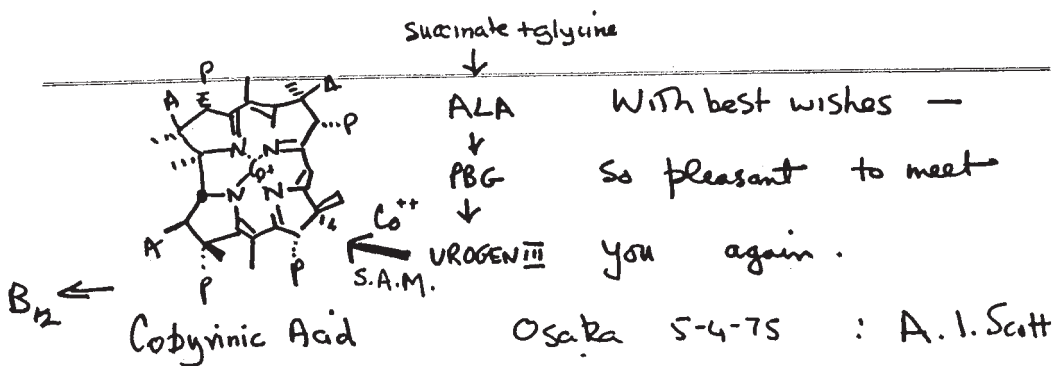 succinate + glycine
↓
ALA
↓
PBG
↓
UROGEN III
Co++
S.A.M.
P A
A P
N N
Co+
N N
A P P
B12 ←
Cobyrinic Acid
With best wishes —
So pleasant to meet
you again.
Osaka 5-4-75 : A. I. Scott